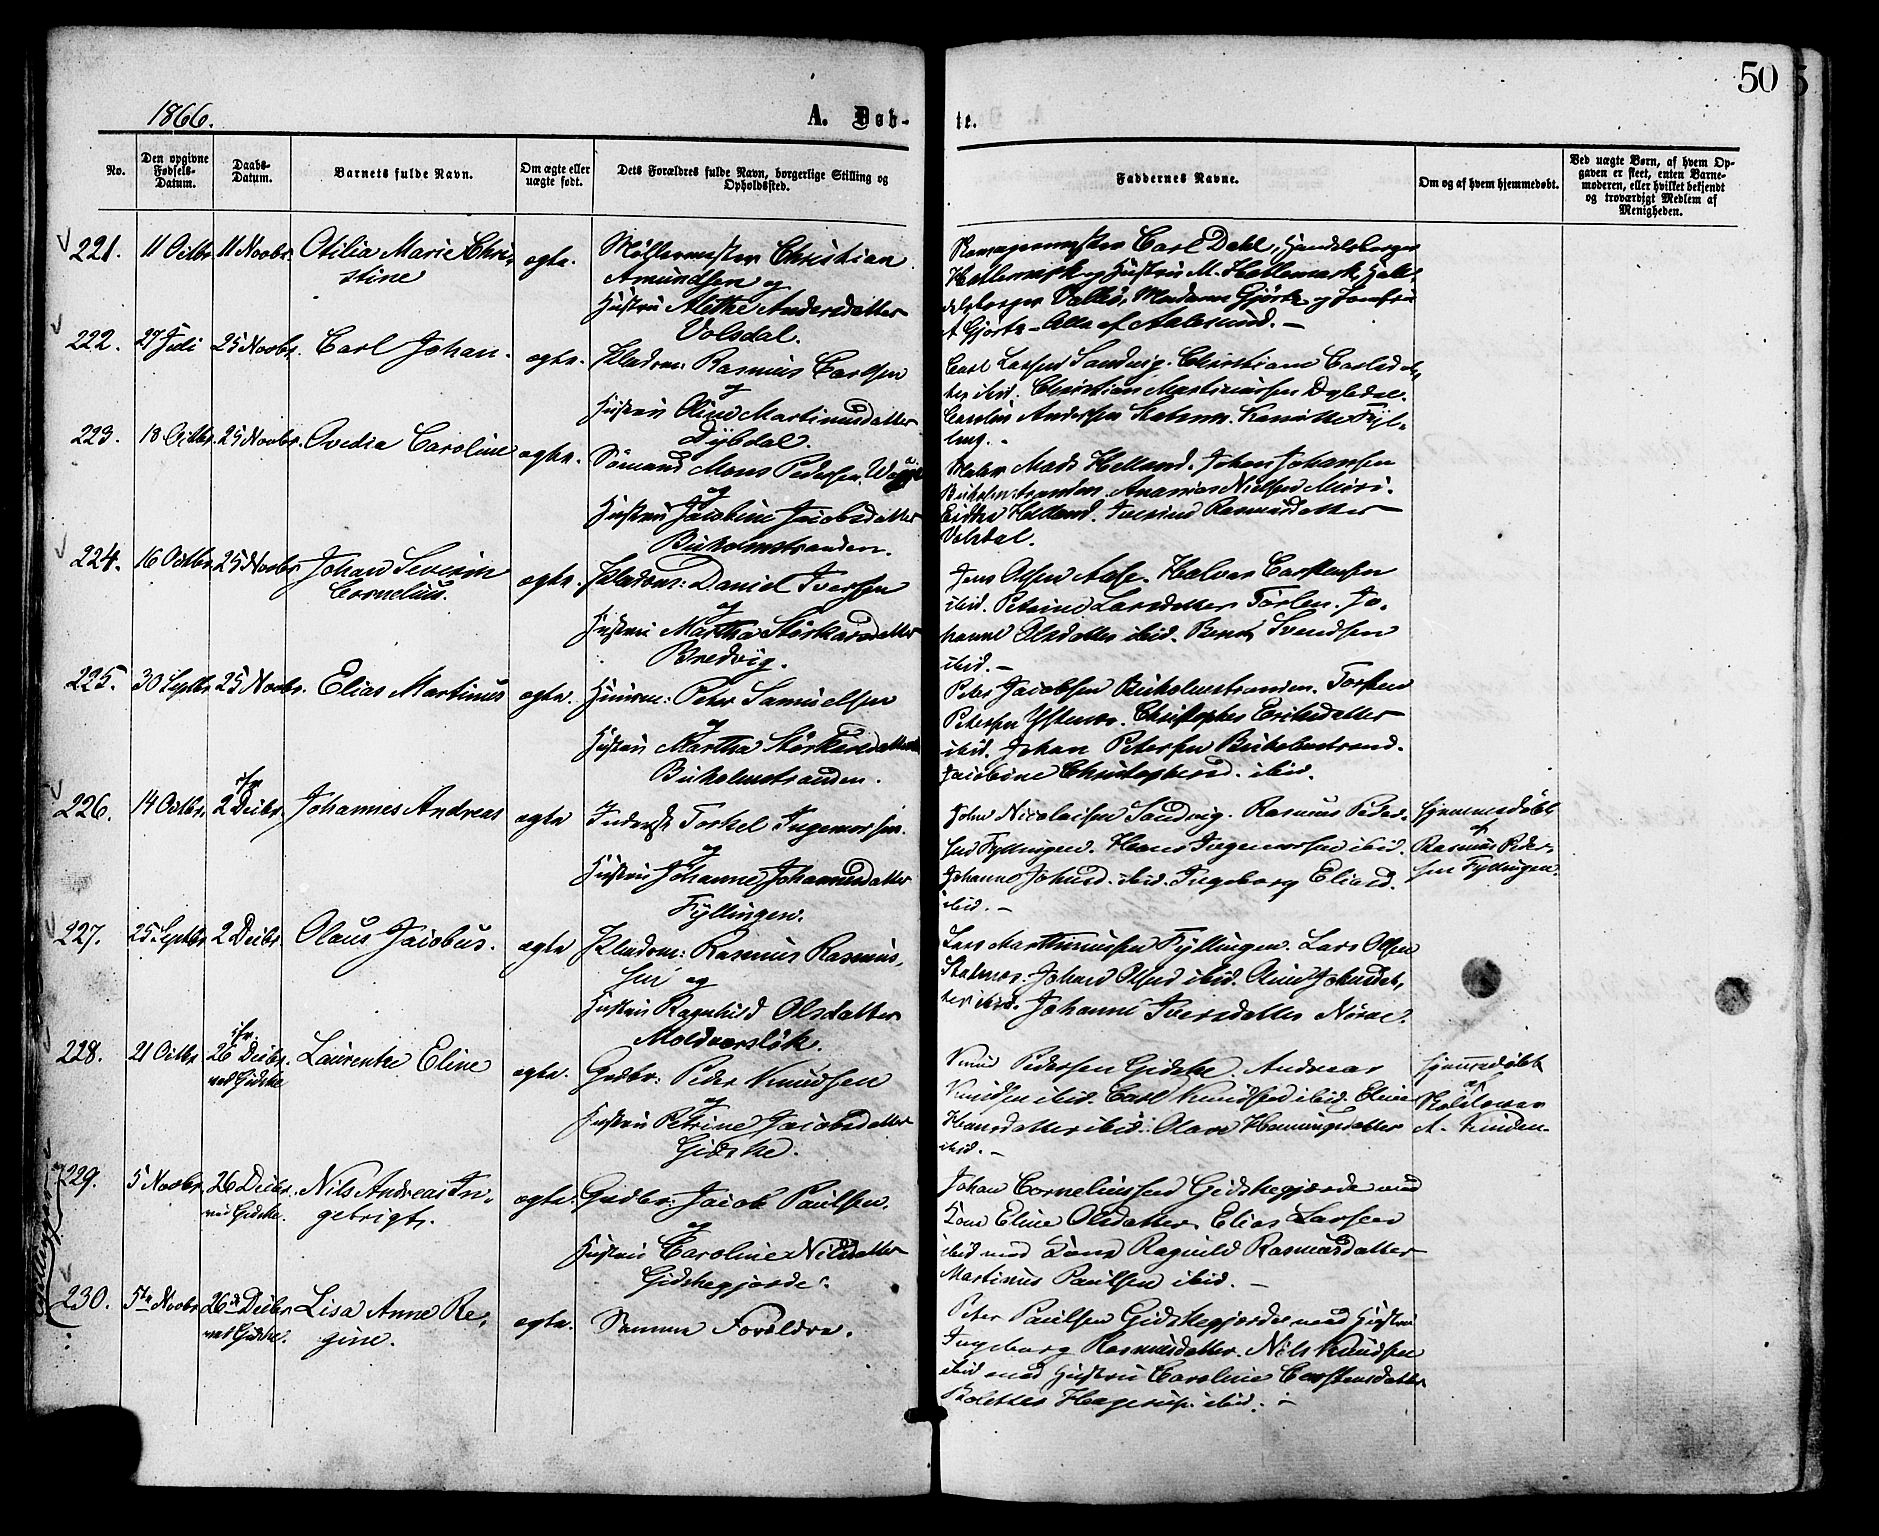 1866.
A. Døb-
te.
50
No.
Den opgivne Fødsels-Datum.
Daabs-Datum.
Barnets fulde Navn.
Om ægte eller uægte født.
Dets Forældres fulde Navn, borgerlige Stilling og Opholdssted.
Faddernes Navne.
Om og af hvem hjemmedøbt.
Ved uægte Børn, af hvem Op-
gaven er skeet, enten Barne-
moderen, eller hvilket bekjendt
og troværdigt Medlem af
Menigheden.
221. 11 Octbr. 11 Novbr. Otilia Marie Chri-
stine
ægte.
Møllermester Christian
Amundsen og
Hustru Alethe Andersdatter
Volsdal.
Carl Dahl, Handelsborger
Hellemark og Hustru M. Hellemark, Han-
delsborger Madame Gjørtz og Jomfru
A Gjørtz – Alle af Aalesund. –
222. 27 Juli 25 Novbr. Carl Johan.
ægte.
Pladsm: Rasmus Carlsen
og
Hustru Oline Martinusdatter
Dybdal.
Carl Larsen Sandvig. Christiane Carlsdat-
ter ibid. Christian Martinussen Dybdal.
Andersen Fyl-
ling. –
223. 18 Octbr. 25 Novbr. Ovedia Caroline
ægte.
Sømand Mons Pedersen
og
Hustru Jacobine Jacobsdatter
Buholmstranden.
Mads Helland. Johan Johansen
Buholmstranden. Ananias Nielsen
Helland. Rasmusdatter
Volsdal.
224. 16 Octbr. 25 Novbr. Johan Severin
Cornelius.
ægte.
Pladsm: Daniel Iversen
og
Hustru Martha Størkersdatter
Bredvig.
Jens Olsen Aase. Halvor Carstensen
ibid. Petrine Larsdatter Jo-
hanne Olsdatter ibid. Svendsen
ibid. –
225. 30 Septbr. 25 Novbr. Elias Martinus
ægte.
Huusm: Peter Samuelsen
og
Hustru Martha Størkersdatter
Buholmstranden.
Peter Jacobsen Buholmstranden. Torsten
Petersen Ystenæs. Eriksdatter
ibid. Johan Petersen Buholmstrand.
Jacobine Christophersd. ibid.
226. 14 Octbr. 2 Decbr. Johannes Andreas
ægte
Inderst Torkel Ingemorsen.
og
Hustru Johanne Johannesdatter
Fyllingen.
John Nicolaisen Sandvig. Rasmus Peder-
sen Fyllingen. Hans Ingemorsen ibid.
Johanne Johnsd. ibid. Ingeborg Eliasd.
ibid. –
Hjemmedøbt
af
Rasmus Peder-
sen Fyllingen.
227. 25 Septbr. 2 Decbr. Olaus Jacobus.
ægte
Pladsm: Rasmus Rasmus-
sen og
Hustru Ragnhild Olsdatter
Moldværsløk.
Lars Marthinussen Fyllingen. Lars Olsen
Johnsdat-
ter ibid. Johanne Iversdatter Nørve.
228. 21 Octbr. 26 Decbr.
ved Gidske
Laurentze Eline
ægte.
Grdbr: Peder Knudsen
og
Hustru Petrine Jacobsdatter
Gidske.
Knud Pedersen Gidske. Andreas
Knudsen ibid. Carl Knudsen ibid. Eline
Hansdatter ibid. Henningsdatter
ibid. –
Hjemmedøbt
af
229. 5 Novbr. 26 Decbr.
ved Gidske.
Nils Andreas In-
gebrigt.
ægte.
Grdbr: Jacob Paulsen.
og
Hustru Caroline Nilsdatter
Gidskegjerde.
Johan Corneliussen Gidskegjerde med
Kone Eline Olsdatter. Elias Larsen
ibid med Kone Ragnild Rasmusdatter
Martinus Paulsen ibid. –
230. 5te Novbr. 26de Decbr.
ved Gidske.
Lisa Anne Re-
gine.
ægte.
Samme Forældre.
Peter Paulsen Gidskegjerde med Hustru
Ingeborg Rasmusdatter. Nils Knudsen
ibid med Hustru Caroline Carstensdatter
Bolette Hagerup ibid. –
Tvillinger